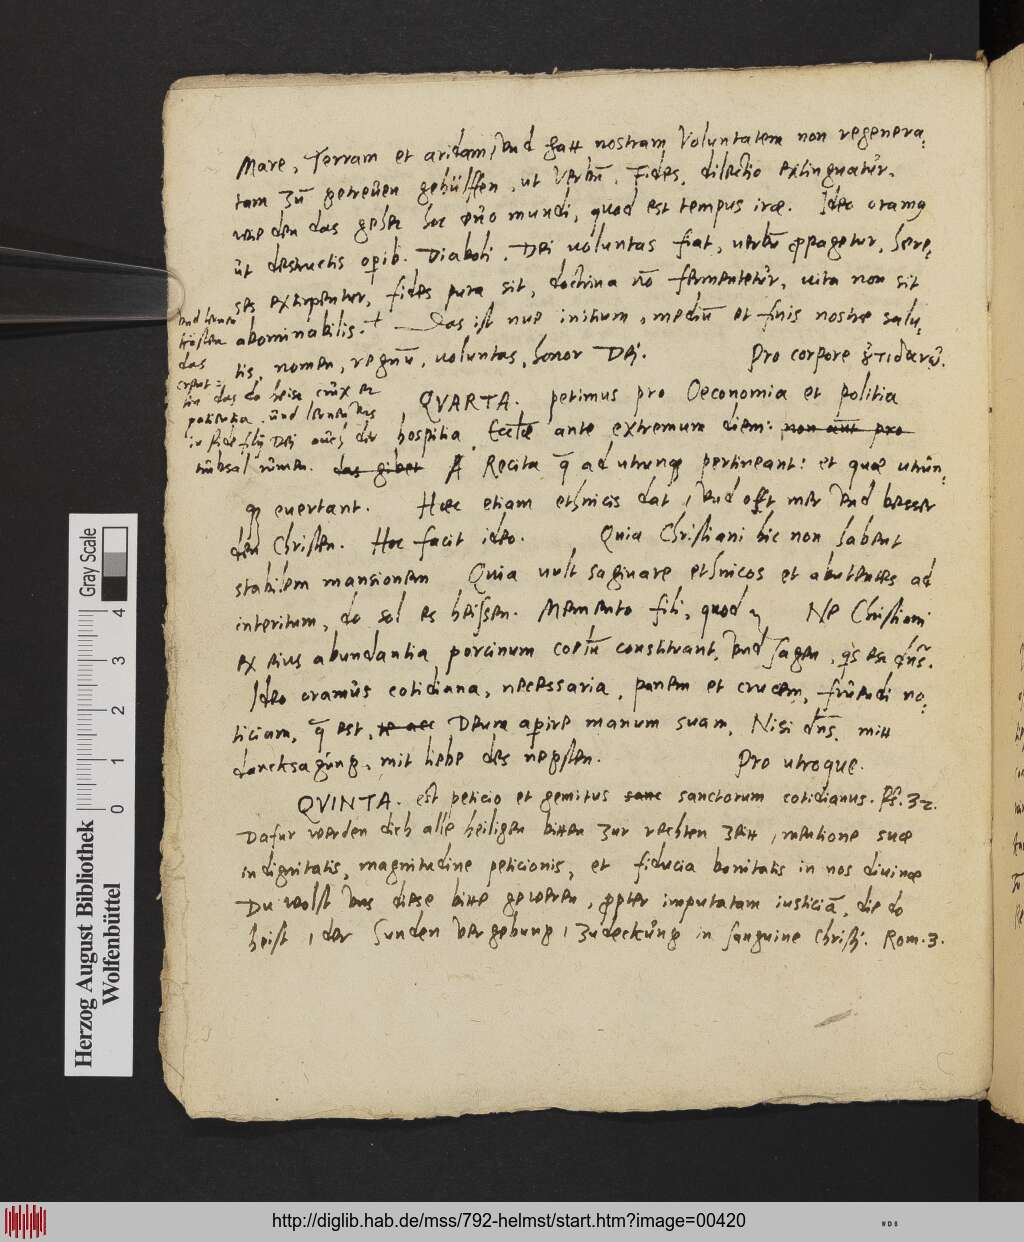 Mare, Terram et aridam, vnd hatt nostram Voluntatem non regenera,
tam zū getreuen gehülffen, ut Verbū, Fides, dilectio extinguatur.
das hoc mundi, quod est tempus irae. Ideo oramq
ut destructis opib. Diaboli, Dei voluntas fiat, verbū ppagetur, here,
ses extirpentur, fides pura sit, doctrina nō fermentetur, vita non sit
abominabilis.+ Das ist nue initium, mediū et finis nostre salu,
tis, nomen, regnū, voluntas, honor Dei. Pro corpore
QVARTA. petimus pro Oeconomia et politia
hospitia Eccliae ante extremum diem: non aut pro
vnd lernen
trösten
das
creut=
tze das do heisst crux et
patientia, und lernen das
in fide filij Dei auch die
trübsal rümen. das gibet Recita q ad utrunq pertineant: et quae utrun,
q evertant. Haec etiam ethnicis dat, vnd offt mer vnd besser
den Christen. Hoc facit ideo. Quia Christiani hic non habent
stabilem mansionem Quia vult saginare ethnicos et abutentes ad
interitum, do sol es heissen. Memento fili, quod Ne Christiani
ex eius abundantia, porcinum coetū constituant, vnd sagen, qs est dns.
Ideo oramus cotidiana, necessaria, panem et crucem, fruendi no,
ticiam, q est, Deum apire manum suam, Nisi dns, mitt
dancksagung, mit liebe des negsten. Pro utroque.
QVINTA. est peticio et gemitus sanc sanctorum cotidianus. Ps. 32.
Dafur werden dich alle heiligen bitten zur rechten zeitt, mentione suae
indignitatis, magnitudine peticionis, et fiducia bonitatis in nos divinae
Du wolst vns diese bitte geweren, ppter imputatam iusticiā, die do
heist, der Sunden vergebung, zudeckung in sanguine Christi. Rom. 3.
Gray Scale
0 1 2 3 4
Herzog August Bibliothek
Wolfenbüttel
http://diglib.hab.de/mss/792-helmst/start.htm?image=00420